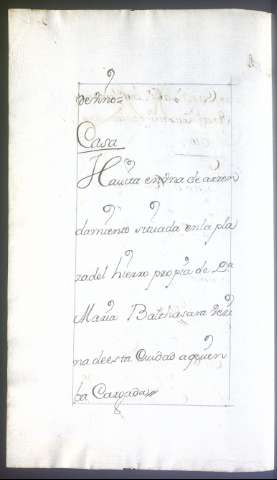 de Vino=
Casa
Havita en una de arren
damiento situada en la pla
za del hierro propia de Da
Maria Balthasara veci
na de esta Ciudad a quien
ba Cargada